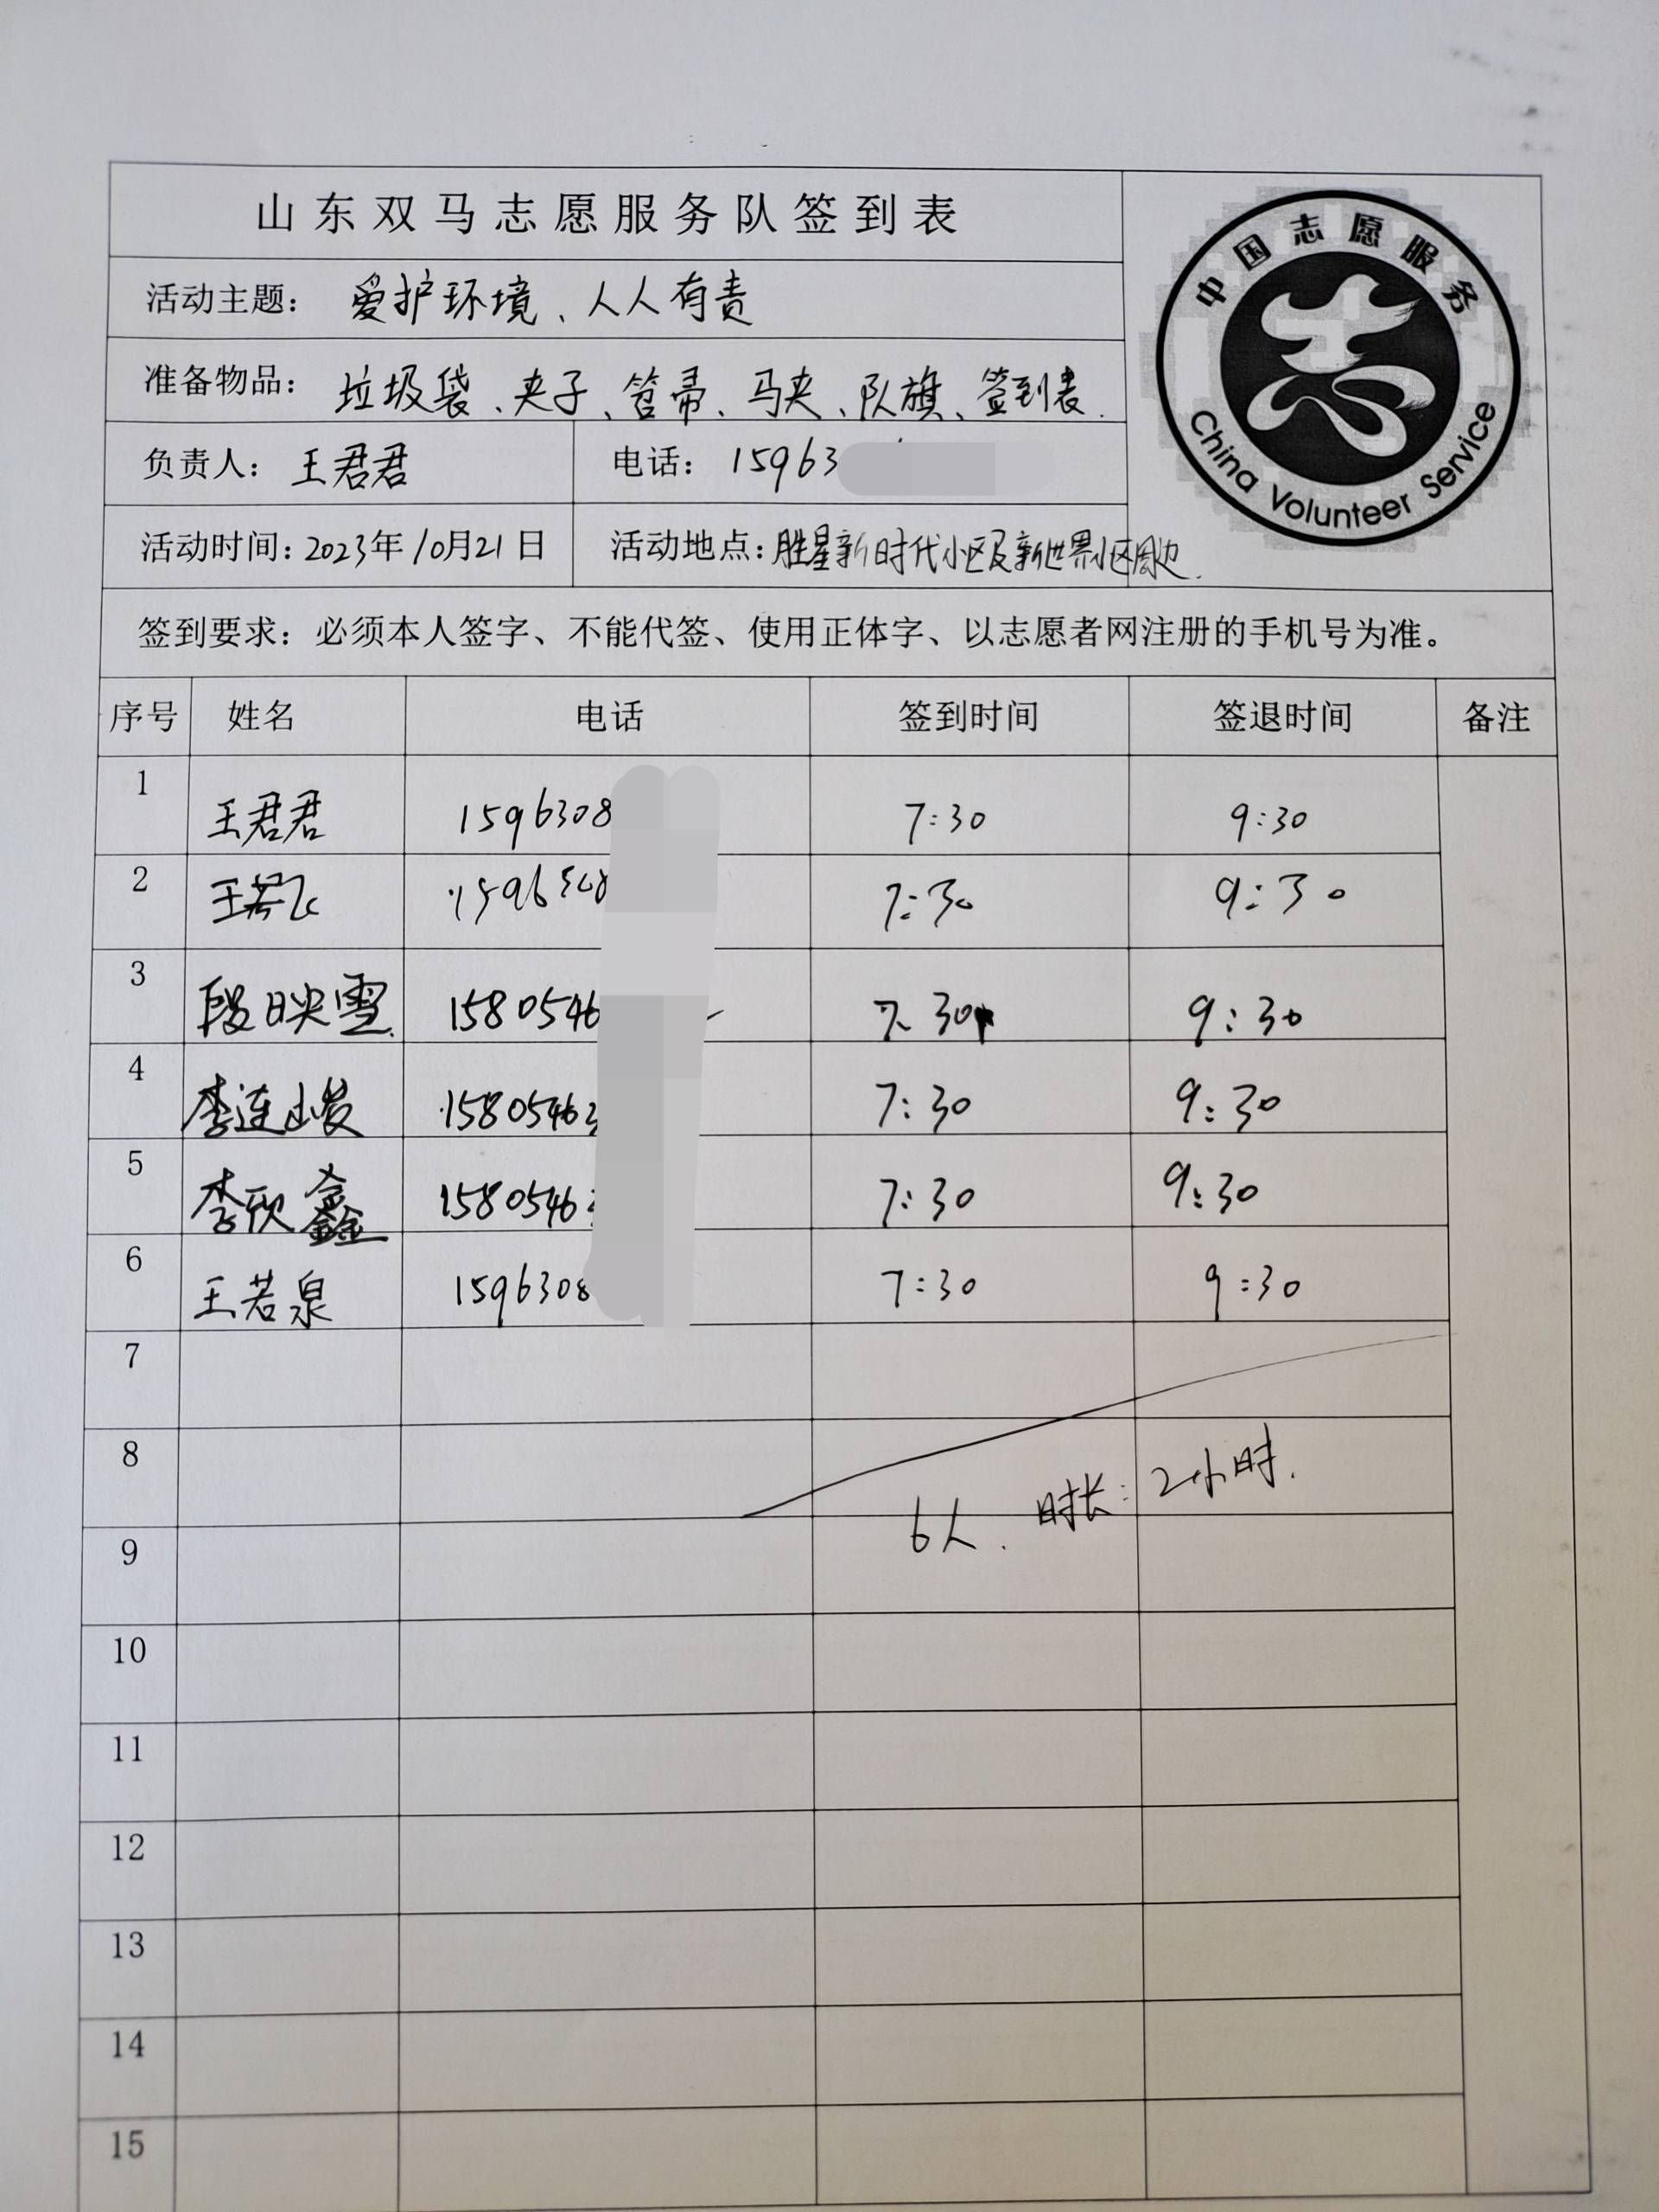 山东双马志愿服务队签到表
中国志愿服务
China Volunteer Service
活动主题：爱护环境、人人有责
准备物品：垃圾袋、夹子、笤帚、马夹、队旗、签到表.
负责人：王君君 电话：15963
活动时间：2023年10月21日 活动地点：胜星新时代小区及新世界小区周边.
签到要求：必须本人签字、不能代签、使用正体字、以志愿者网注册的手机号为准。
序号 姓名 电话 签到时间 签退时间 备注
1 王君君 1596308 7:30 9:30
2 王若飞 1596308 7:30 9:30
3 段映雪 1580546 7:30 9:30
4 李连峻 1580546 7:30 9:30
5 李欣鑫 1580546 7:30 9:30
6 王若泉 1596308 7:30 9:30
7
8
6人. 时长：2小时.
9
10
11
12
13
14
15